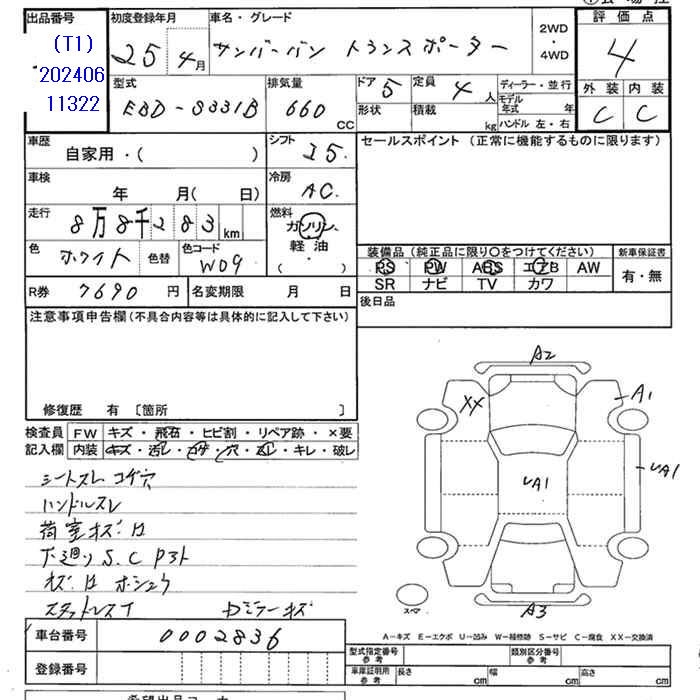 出品番号 初度登録年月 車名・グレード 2WD ・ 4WD 評価点
(T1) 202406 11322
25 4月 サンバーバン トランスポーター 4
型式 排気量 ドア 5 定員 4人 ディーラー・並行 外装 内装
EBD-S331B 660 CC 形状 積載 kg モデル年式 年 ハンドル 左・右 C C
車歴 自家用・( ) シフト I5 セールスポイント (正常に機能するものに限ります)
車検 年 月( 日) 冷房 AC
走行 8万8千283km 燃料 ガソリン 軽油 ( ・ )
色 ホワイト 色替 色コード W09
装備品 (純正品に限り〇をつけてください) 新車保証書
PS PW ABS エアB AW 有・無
SR ナビ TV カワ
R券 7690円 名変期限 月 日 後日品
注意事項申告欄(不具合内容等は具体的に記入して下さい)
修復歴 有 〔箇所 〕
検査員 FW キズ・飛石・ヒビ割・リペア跡・×要
記入欄 内装 キズ・汚レ・コゲ・穴・スレ・キレ・破レ
シートスレ コゲ穴
ハンドルスレ
荷室キズ.凹
下廻り S.C Pヨト
キズ.凹 ホシュウ
スタットレスT
ミラーキズ
A2
XX
A1
UA1
UA1
A3
スペア
A-キズ E-エクボ U-凹み W-補修跡 S-サビ C-腐食 XX-交換済
車台番号 0002836
型式指定番号 参考 類別区分番号 参考
登録番号
車庫証明用 参考 長さ cm 幅 cm 高さ cm